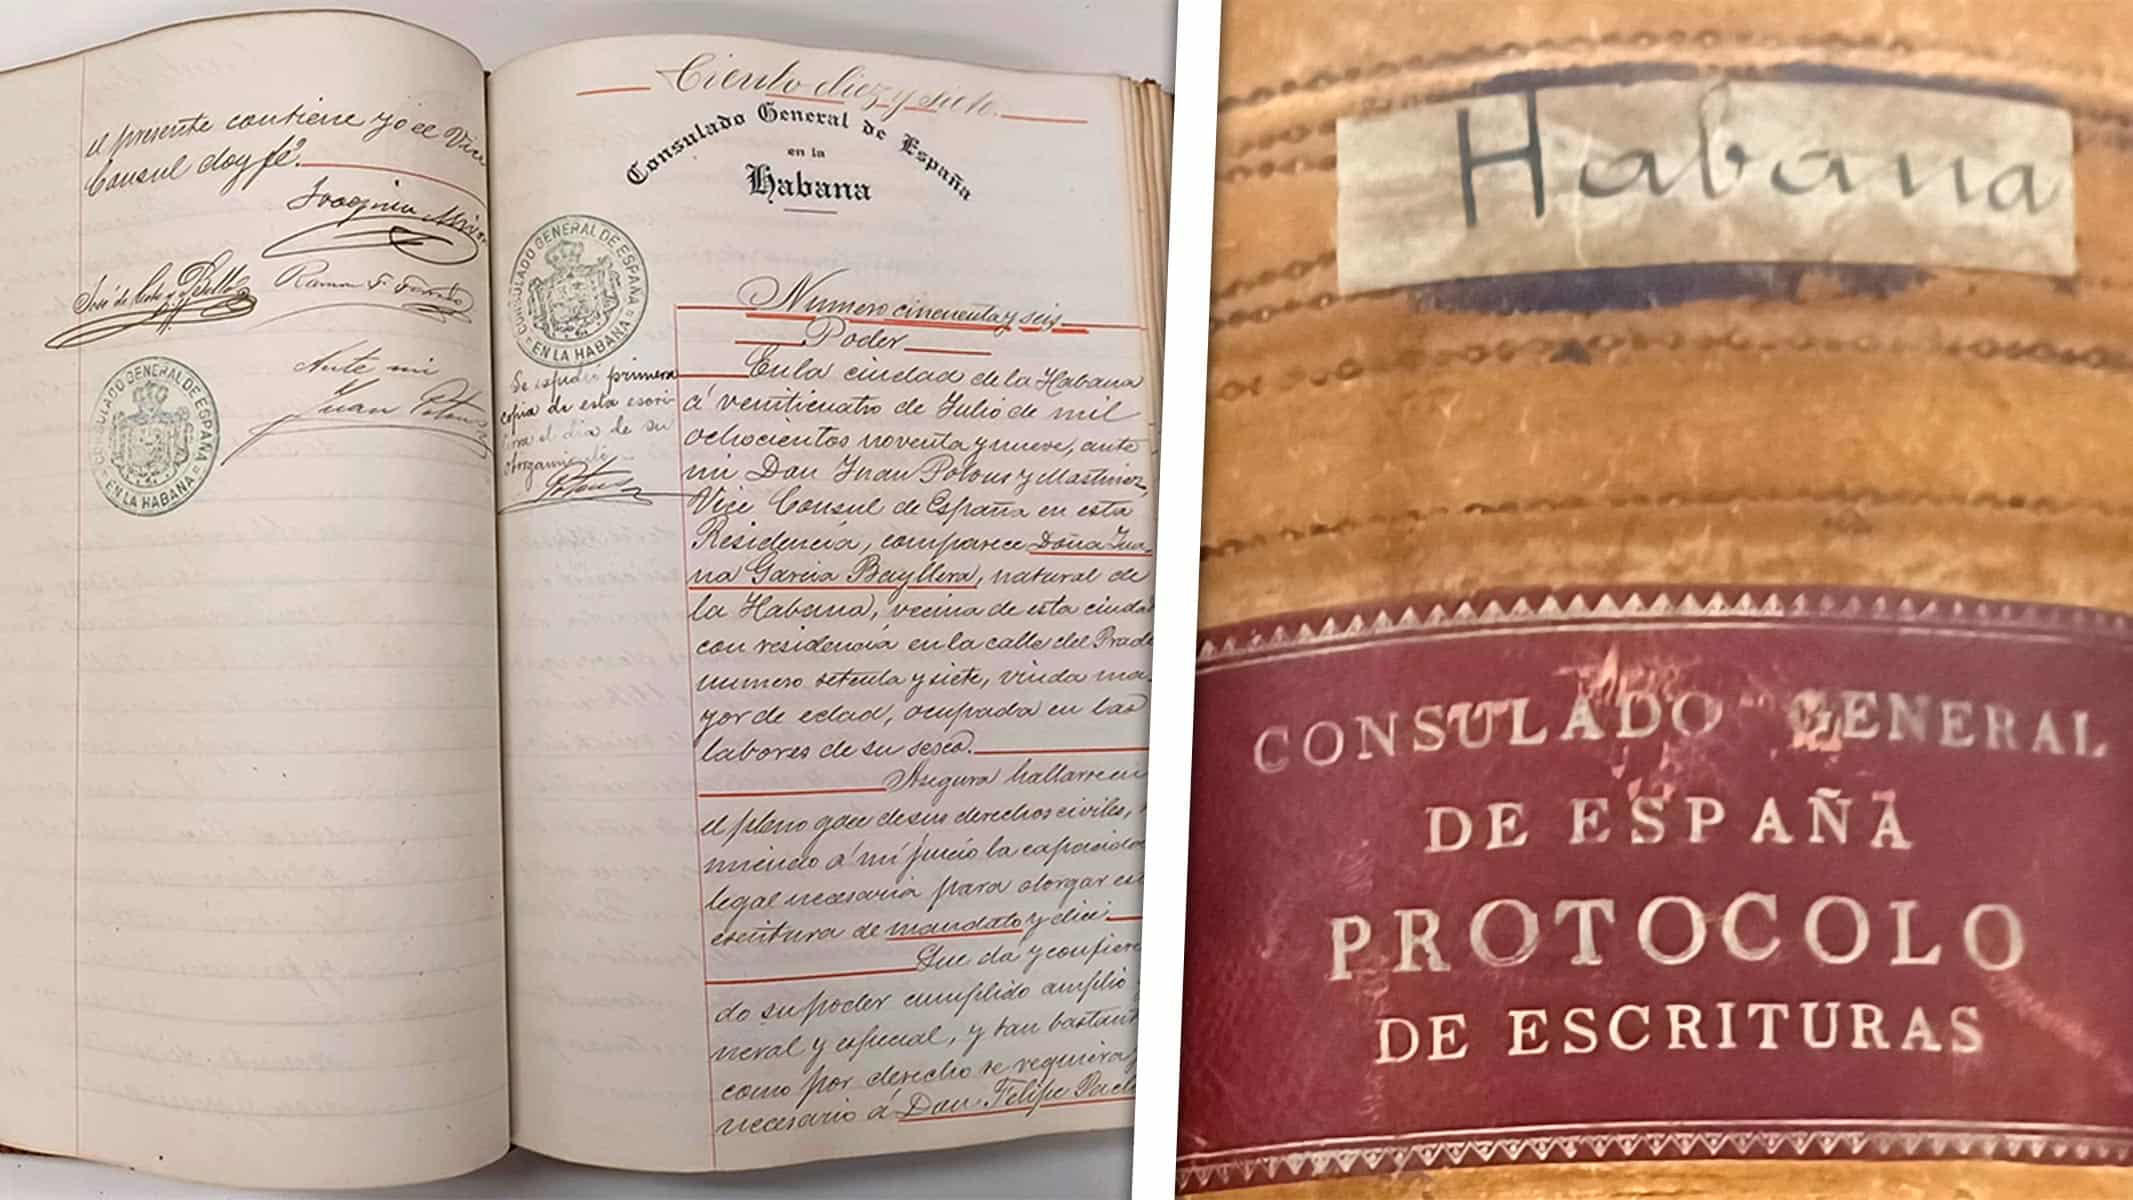 el presente contiene yo el Vice
Consul doy fé.
Ante mi
CONSULADO GENERAL DE ESPAÑA
EN LA HABANA
Ciento diez y siete.
Consulado General de España
en la
Habana
CONSULADO GENERAL DE ESPAÑA
EN LA HABANA
Se espidió primera
copia de esta escri-
tura el dia de su
otorgamiento
Numero cincuenta y seis
Poder
En la ciudad de la Habana
á veinticuatro de Julio de mil
ochocientos noventa y nueve, ante
mi Don Juan Potous y Martinez,
Vice Consul de España en esta
Residencia, comparece Doña Jua-
na Garcia Bayllera, natural de
la Habana, vecina de esta ciudad
con residencia en la calle del Prado
numero setenta y siete, viuda ma-
yor de edad, ocupada en las
labores de su sexo.
Asegura hallarse en
el pleno goce de sus derechos civiles,
niendo á mi juicio la capacidad
legal necesaria para otorgar es
escritura de mandato y dice:
Que da y confiere
do su poder cumplido amplio
neral y especial, y tan bastante
como por derecho se requiera y
necesario á Don Felipe
Habana
CONSULADO GENERAL
DE ESPAÑA
PROTOCOLO
DE ESCRITURAS